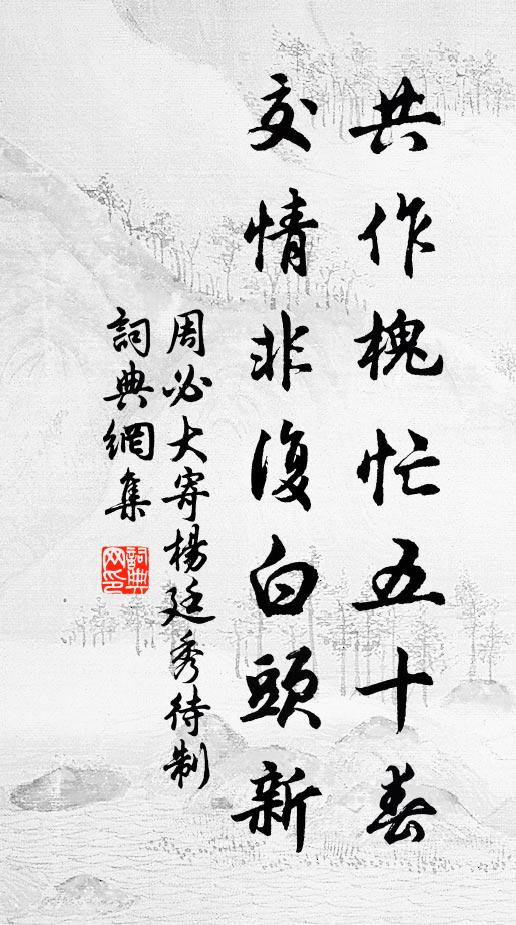 共作槐忙五十春
交情非復白頭新
周必大寄楊廷秀待制
詞典網集
詞典网印